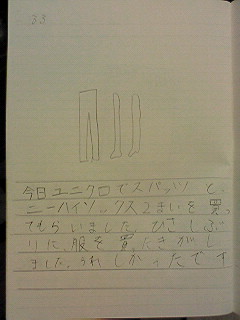 33
今日ユニクロでスパッツと、
ニーハイソックス2まいを買っ
てもらいました。ひさしぶ
りに、服を買ったきがし
ました。うれしかったです